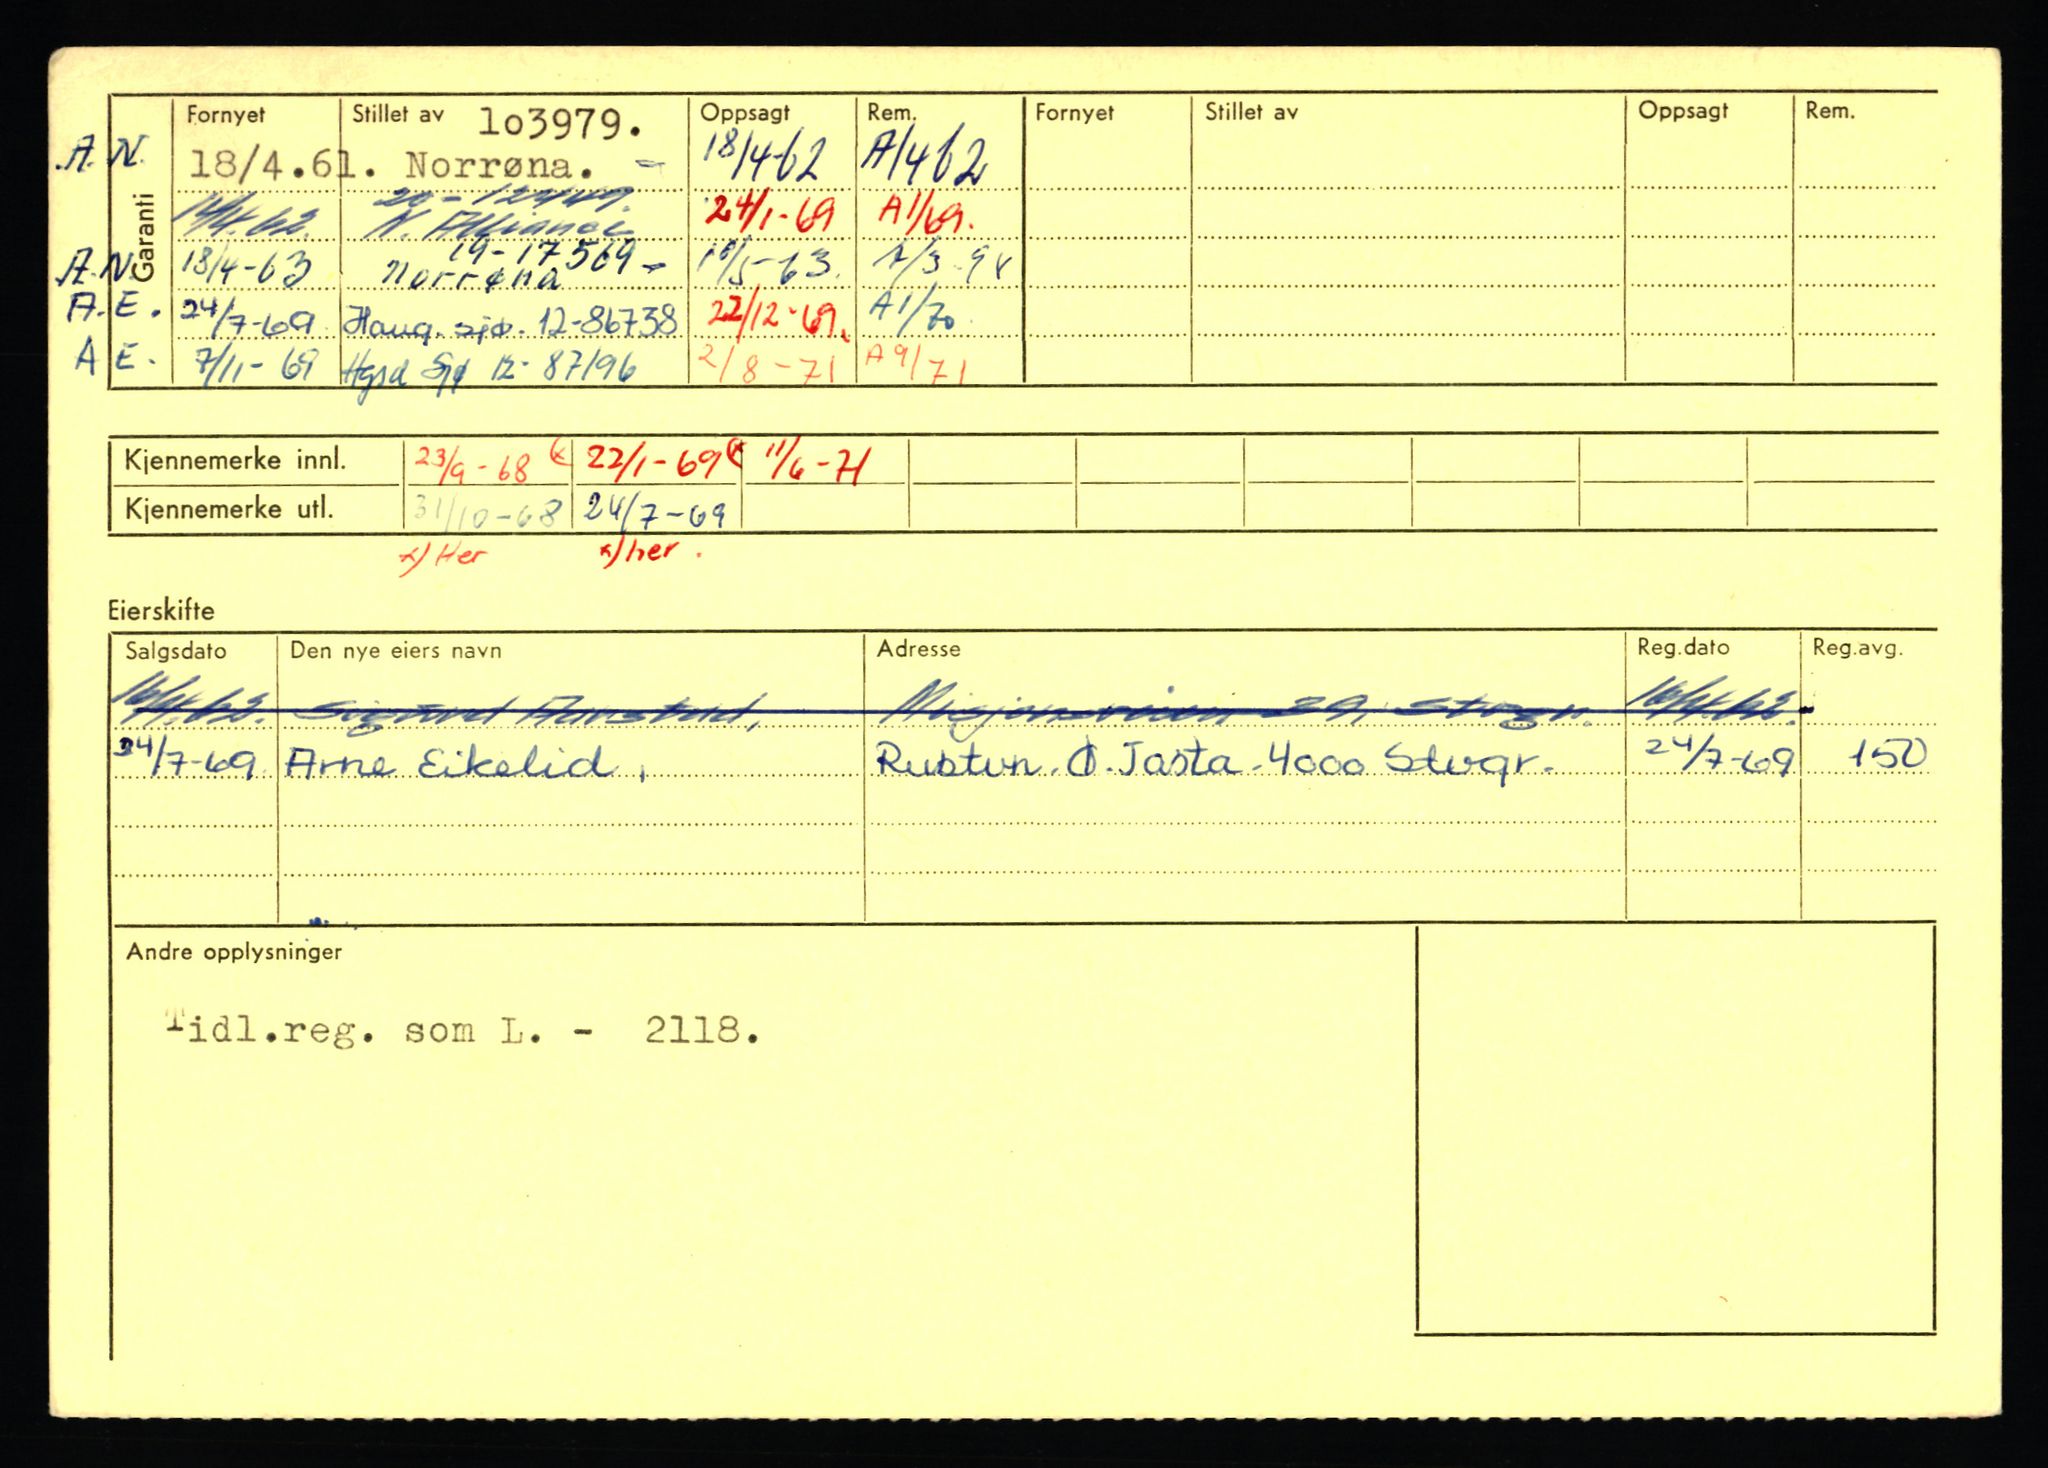 Fornyet Stillet av 103979. Oppsagt Rem. Fornyet Stillet av Oppsagt Rem.
A. N. 18/4.61. Norrøna. - 18/4-62 A/4 62
Garanti
20-12949.
14/4.62. N. Alliance 24/1-69 A1/69.
19-17569
A. N. 18/4-63 Norrøna - 10/5-63. A/3
A. E. 24/7-69 Haug. sjø. 12-86738 22/12-69. A1/70
A E. 7/11-69 Hgsd Sjø 12-87196 2/8-71 A9/71
Kjennemerke innl. 23/9-68 (x 22/1-69 (x 11/6-71
Kjennemerke utl. 31/10-68 24/7-69
x) Her x) her.
Eierskifte
Salgsdato Den nye eiers navn Adresse Reg.dato Reg.avg.
16/4.62. Sigurd Aanstad, Misjonsveien 39, Stvgr. 16/4.62.
24/7-69 Arne Eikelid, Rustvn. Ø. Tasta. 4000 Stvgr. 24/7-69 150
Andre opplysninger
Tidl.reg. som L. - 2118.